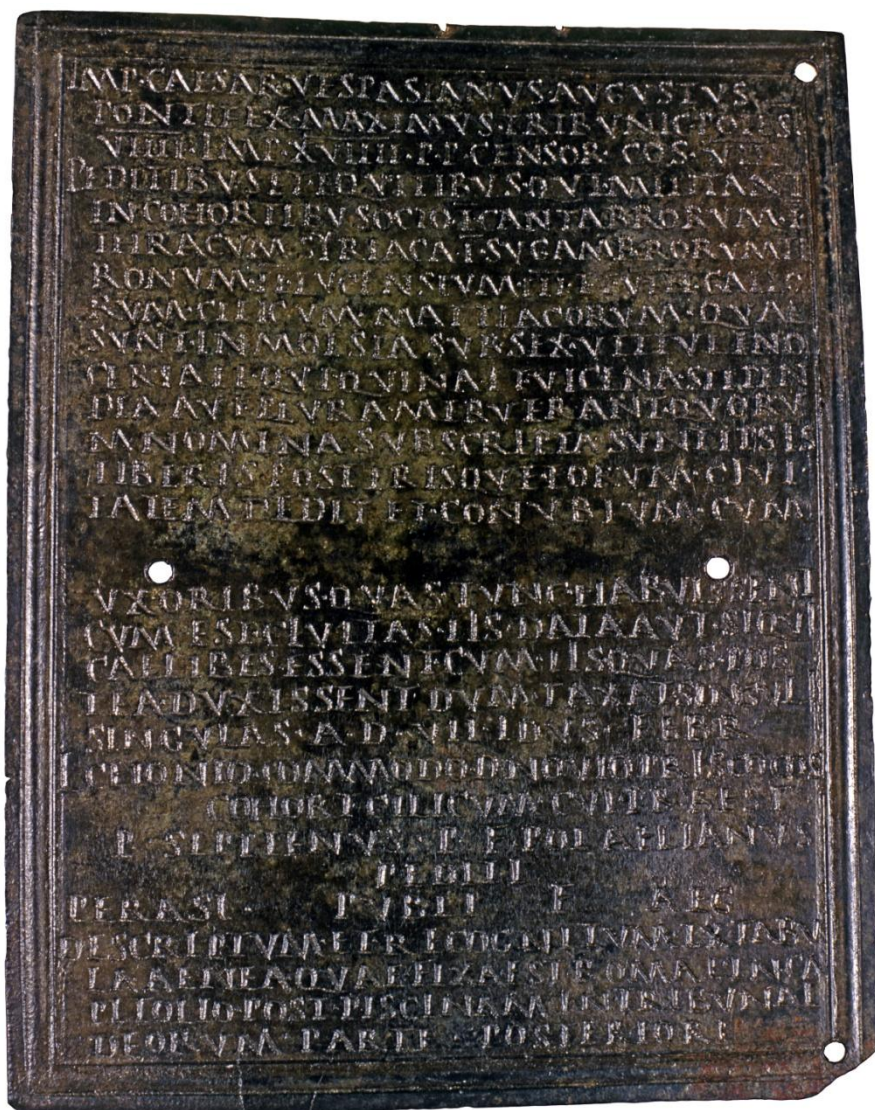 IMP·CAESAR·VESPASIANVS·AVGVSTVS
PONTIFEX·MAXIMVS·TRIBVNIC·POTEST
VIIII·IMP·XVIIII·P·P·CENSOR·COS·VIII
PEDITIBVS·ET·EQVITIBVS·QVI·MILITANT
IN·COHORTIBVS·OCTO·I·CANTABRORVM·I
THRACVM·SYRIACA·I·SVGAMBRORVM·II
RVM·CILICVM·MATTIACORVM·QVAE
SVNT·IN·MOESIA·SVB·SEX·VETTVLENO
CERIALE·QVI·QVINA·ET·VICENA·STIPEN
DIA·AVT·PLVRA·MERVERANT·QVORV
M·NOMINA·SVBSCRIPTA·SVNT·IPSIS
LIBERIS·POSTERISQVE·EORVM·CIVI
TATEM·DEDIT·ET·CONVBIVM·CVM
VXORIBVS·QVAS·TVNC·HABVISSENT
CVM·EST·CIVITAS·IIS·DATA·AVT·SIQVI
CAELIBES·ESSENT·CVM·IIS·QVAS·POS
TEA·DVXISSENT·DVM·TAXAT·SINGVLI
SINGVLAS·A·D·VII·IDVS·FEBR
COHORT·CILICVM·CVI·PRAEST
PEDITI
PERASI F AEG
DESCRIPTVM·ET·RECOGNITVM·EX·TABV
LA·AENEA·QVAE·FIXA·EST·ROMAE·IN·CA
PITOLIO·POST·PISCINAM·IN·TRIBVNAL
DEORVM PARTE POSTERIORE